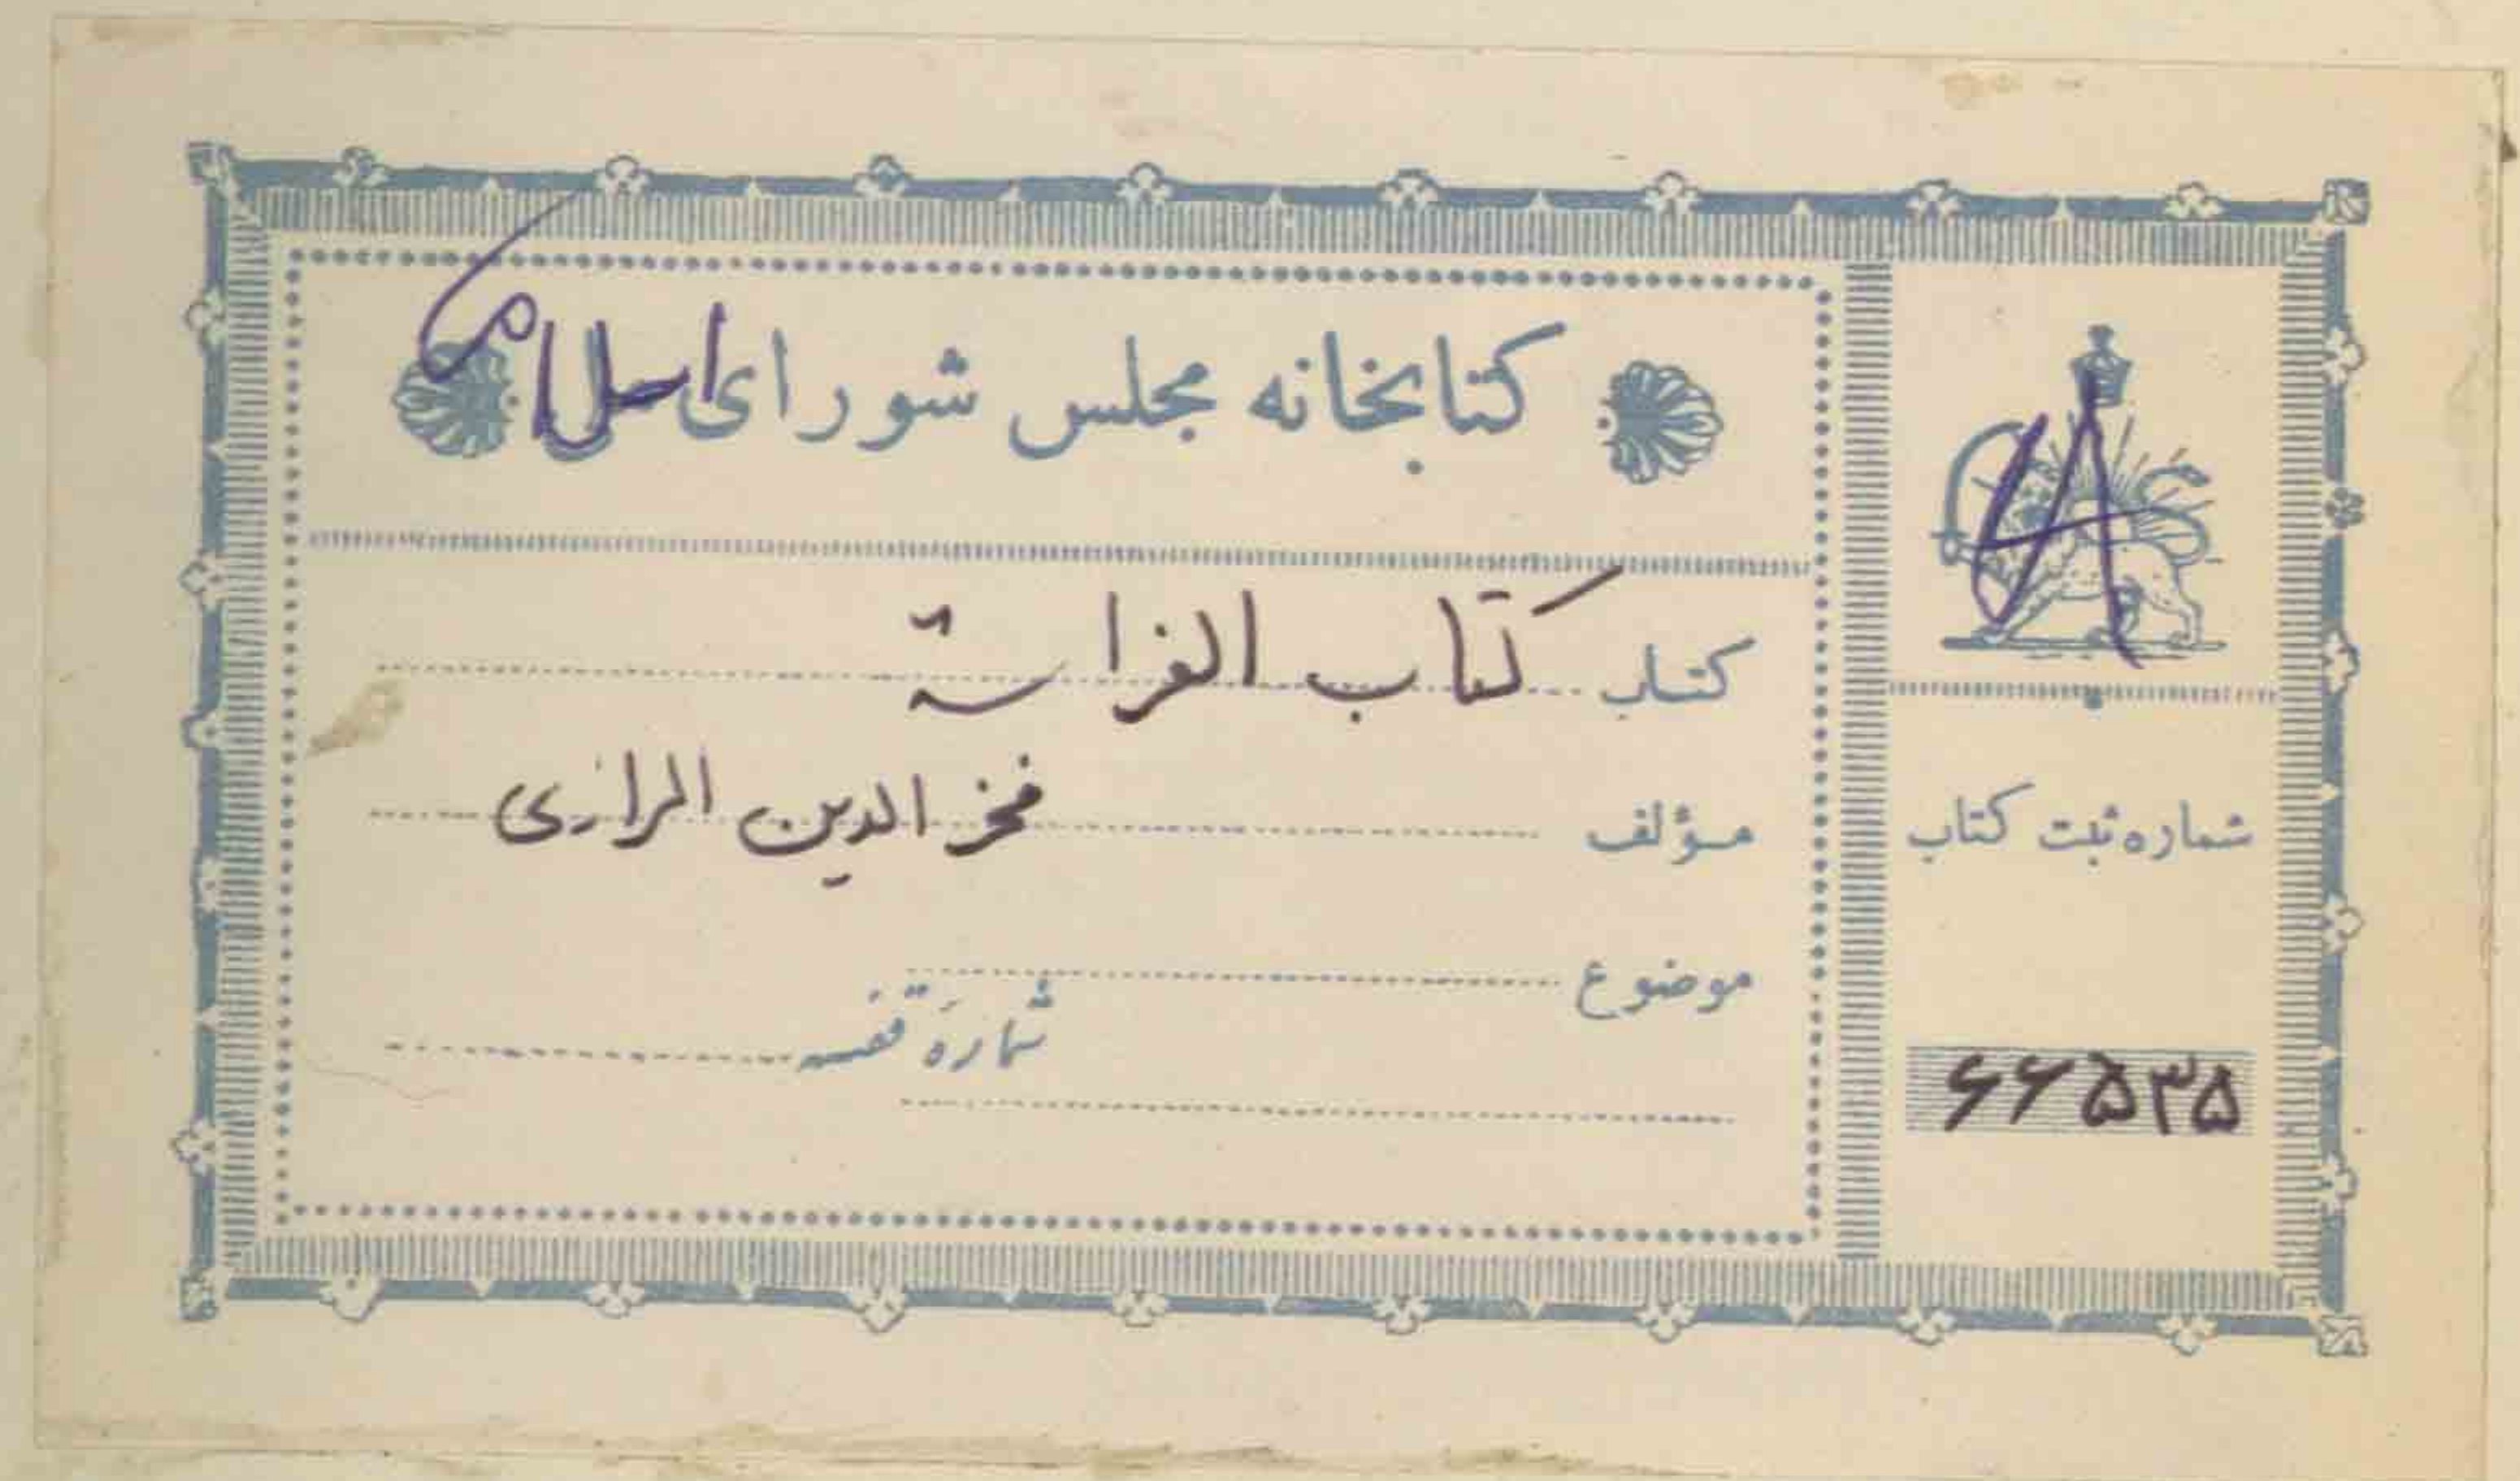 کتابخانه مجلس شورای اسلامی
کتاب کتاب الفراسة
مؤلف فخر الدین الرازی
موضوع
شماره قفسه
شماره ثبت کتاب
۶۶۵۳۵